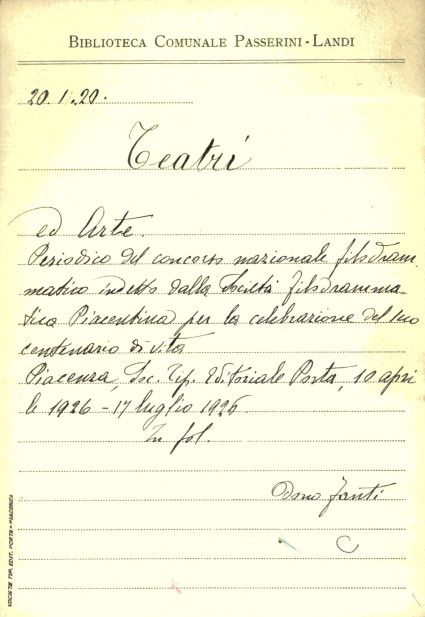 BIBLIOTECA COMUNALE PASSERINI-LANDI
20.1.20.
Teatri
ed Arte.
Periodico del concorso nazionale filodram
matico indetto dalla Società filodramma
tica Piacentina per la celebrazione del suo
centenario di vita
Piacenza, Soc. Tip. Editoriale Porta, 10 apri
le 1926 - 17 luglio 1926.
In fol.
Dono Fanti
C
SOCIETÀ TIP. EDIT. PORTA - PIACENZA